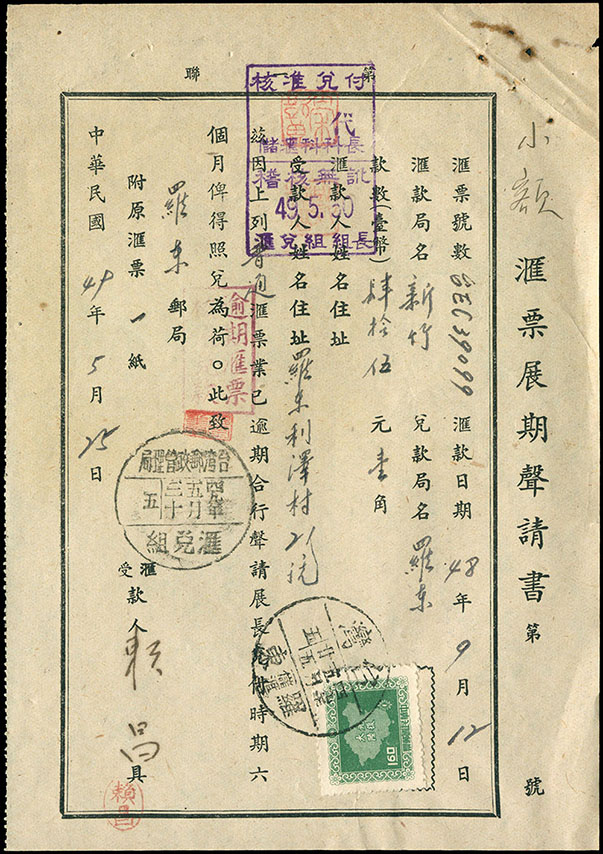 第 聯
小額
滙票展期聲請書 第 號
滙票號數 滙款日期 48年9月12日
滙款局名 新竹 兌款局名 羅東
款數(臺幣) 肆拾伍元壹角
滙款人姓名住址
受款人姓名住址 羅東利澤村21號
茲因上列普通滙票業已逾期合行聲請展長兌付時期六
個月俾得照兌為荷。此致
羅東郵局
附原滙票一紙
滙受款人 賴昌 具
中華民國49年5月25日
核准兌付
代
儲滙科科長
稽核無訛
49.5.30
滙兌組組長
逾期滙票
台灣郵政管理局
四九年
五月
三十
五
滙兌組
台灣
羅東
儲滙
160
賴昌